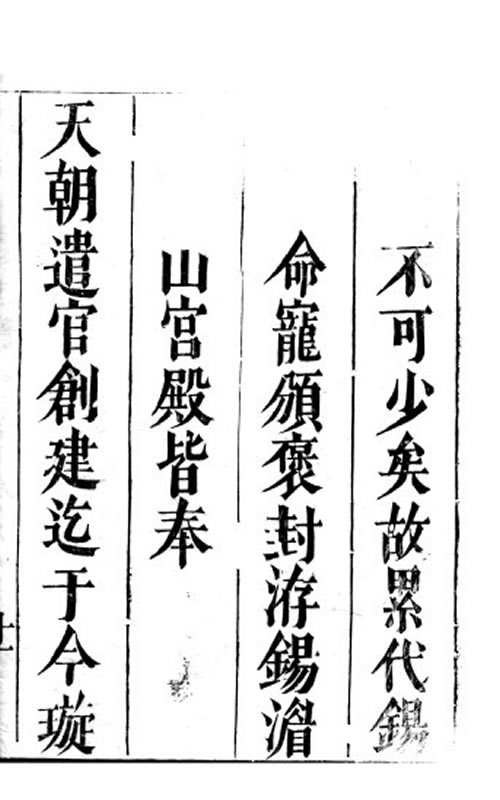 不可少矣故累代錫
命寵頒褒封洊錫湄
山宮殿皆奉
天朝遣官創建迄于今璇